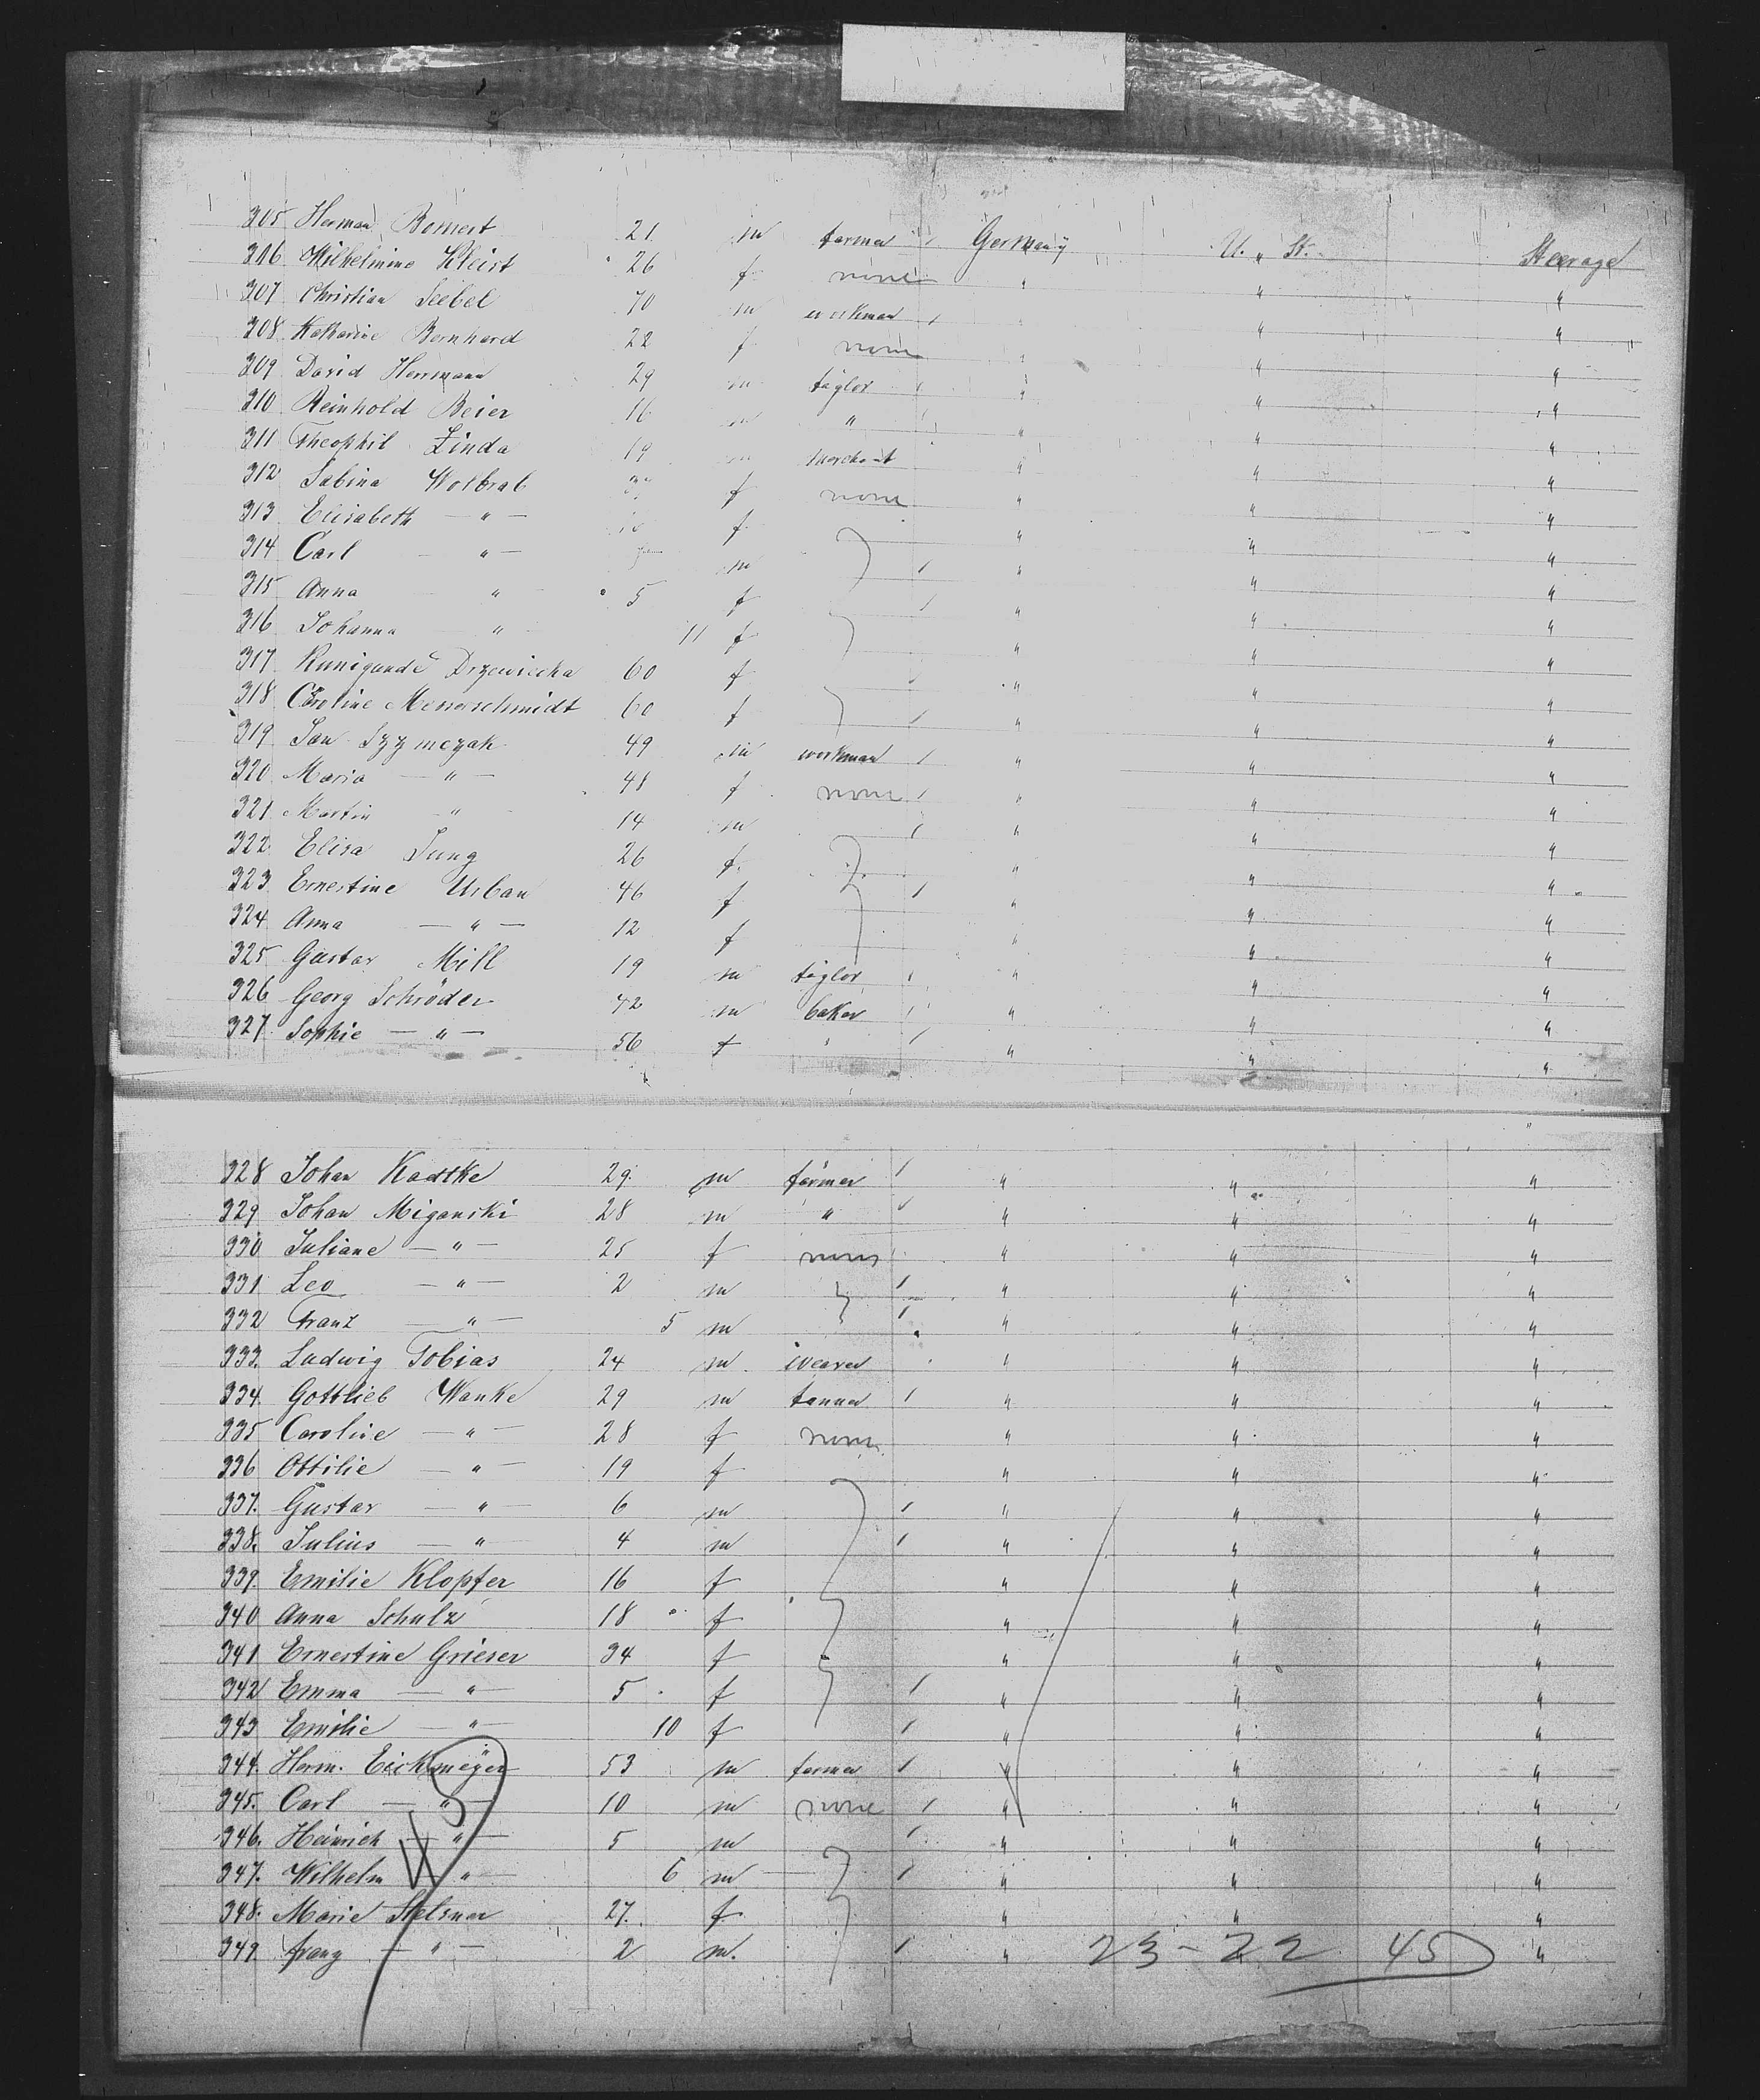 305 Herman Bomert 21 m farmer Germany U. " St. Steerage
306 Wilhelmine Kleist 26 f none " " "
307 Christian Seebel 70 m workman " " "
308 Katharine Bernhard 22 f none " " "
309 David Herrmann 29 m taylor " " "
310 Reinhold Beier 16 m " " " "
311 Theophil Linda 19 m merchant " " "
312 Sabina Wolbrab f none " " "
313 Elisabeth — " — f " " "
314 Carl — " — m " " "
315 Anna — " 5 f " " "
316 Johanna — " 11 f " " "
317 Kunigunde Drzewiecka 60 f " " "
318 Caroline Messerschmidt 60 f " " "
319 Jan Szymczak 49 m workman " " "
320 Maria — " — 48 f none " " "
321 Martin — " — 14 m " " "
322. Elisa Jung 26 f. " " "
323. Ernestine Urban 46 f " " "
324 Anna — " — 12 f " " "
325 Gustav Mill 19 m taylor " " "
326 Georg Schröder 42 m baker " " "
327. Sophie — " — 56 f " " "
328 Johan Radtke 29. m farmer " " "
329 Johan Miganski 28 m " " " "
330 Juliane — " — 25 f none " " "
331 Leo — " — 2 m " " "
332 Franz — " — 5 m " " "
333. Ludwig Tobias 24 m weaver " " "
334. Gottlieb Wanke 29 m tanner " " "
335 Caroline — " — 28 f none " " "
336 Ottilie — " — 19 f " " "
337. Gustav — " — 6 m " " "
338. Julius — " 4 m " " "
339. Emilie Klopfer 16 f " " "
340 Anna Schulz 18 f " " "
341 Ernestine Grieser 34 f " " "
342 Emma — " — 5 f " " "
343 Emilie — " — 10 f " " "
344. Herm. Eickmeÿer 53 m farmer " " "
345. Carl — " — 10 m none " " "
346. Heinrich — " — 5 m " " "
347. Wilhelm " — 6 m " " "
348. Marie 27. f " " "
349. franz — " — 2 m. " 23 - 22 45 "